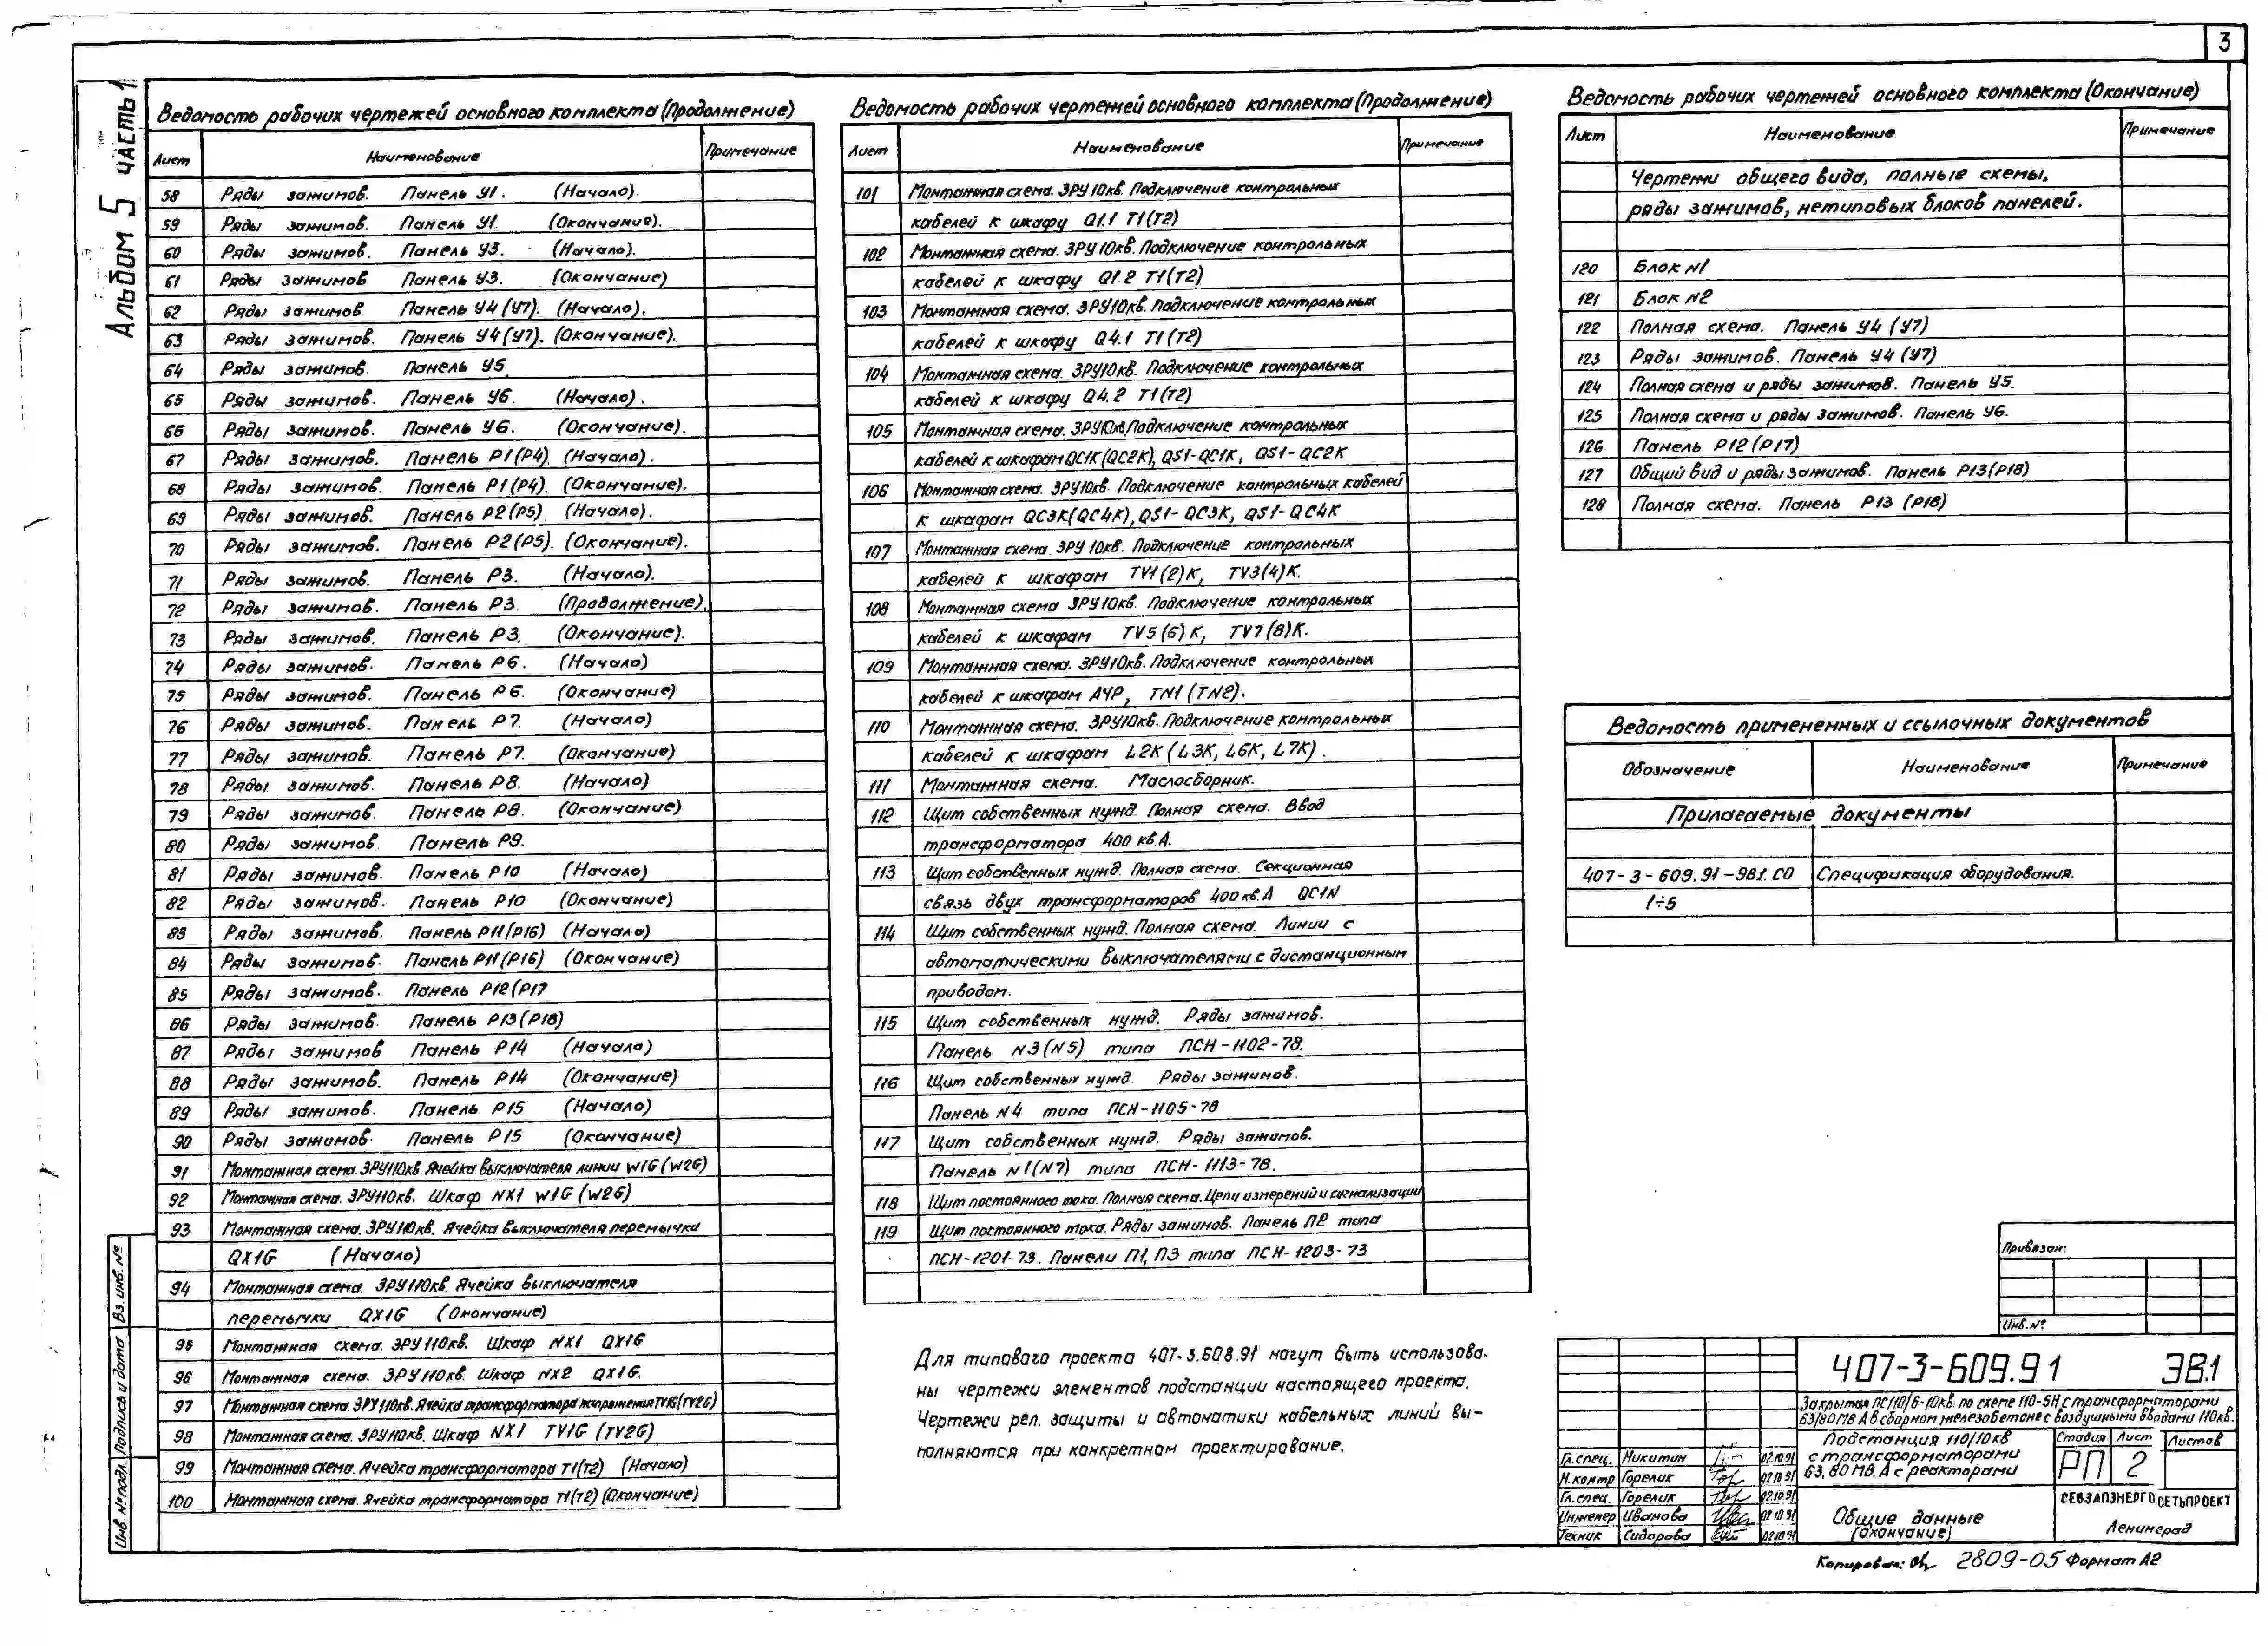 3
Альбом 5 часть 1
Ведомость рабочих чертежей основного комплекта (Продолжение)
Лист Наименование Примечание
58 Ряды зажимов. Панель У1. (Начало).
59 Ряды зажимов. Панель У1. (Окончание).
60 Ряды зажимов. Панель У3. (Начало).
61 Ряды зажимов Панель У3. (Окончание)
62 Ряды зажимов. Панель У4 (У7). (Начало).
63 Ряды зажимов. Панель У4 (У7). (Окончание).
64 Ряды зажимов. Панель У5
65 Ряды зажимов. Панель У6. (Начало).
66 Ряды зажимов. Панель У6. (Окончание).
67 Ряды зажимов. Панель Р1 (Р4). (Начало).
68 Ряды зажимов. Панель Р1 (Р4). (Окончание).
69 Ряды зажимов. Панель Р2 (Р5). (Начало).
70 Ряды зажимов. Панель Р2 (Р5). (Окончание).
71 Ряды зажимов. Панель Р3. (Начало).
72 Ряды зажимов. Панель Р3. (Продолжение).
73 Ряды зажимов. Панель Р3. (Окончание).
74 Ряды зажимов. Панель Р6. (Начало)
75 Ряды зажимов. Панель Р6. (Окончание)
76 Ряды зажимов. Панель Р7. (Начало)
77 Ряды зажимов. Панель Р7. (Окончание)
78 Ряды зажимов. Панель Р8. (Начало)
79 Ряды зажимов. Панель Р8. (Окончание)
80 Ряды зажимов. Панель Р9.
81 Ряды зажимов. Панель Р10 (Начало)
82 Ряды зажимов. Панель Р10 (Окончание)
83 Ряды зажимов. Панель Р11 (Р16) (Начало)
84 Ряды зажимов. Панель Р11 (Р16) (Окончание)
85 Ряды зажимов. Панель Р12 (Р17
86 Ряды зажимов. Панель Р13 (Р18)
87 Ряды зажимов Панель Р14 (Начало)
88 Ряды зажимов. Панель Р14 (Окончание)
89 Ряды зажимов. Панель Р15 (Начало)
90 Ряды зажимов. Панель Р15 (Окончание)
91 Монтажная схема. ЗРУ110кВ. Ячейка выключателя линии W1G (W2G)
92 Монтажная схема. ЗРУ110кВ. Шкаф NX1 W1G (W2G)
93 Монтажная схема. ЗРУ110кВ. Ячейка выключателя перемычки
QX1G (Начало)
94 Монтажная схема. ЗРУ110кВ. Ячейка выключателя
перемычки QX1G (Окончание)
95 Монтажная схема. ЗРУ110кВ. Шкаф NX1 QX1G
96 Монтажная схема. ЗРУ110кВ. Шкаф NX2 QX1G.
97 Монтажная схема. ЗРУ110кВ. Ячейка трансформатора напряжения TV1G (TV2G)
98 Монтажная схема. ЗРУ110кВ. Шкаф NX1 TV1G (TV2G)
99 Монтажная схема. Ячейка трансформатора Т1(Т2) (Начало)
100 Монтажная схема. Ячейка трансформатора Т1(Т2) (Окончание)
Ведомость рабочих чертежей основного комплекта (Продолжение)
Лист Наименование Примечание
101 Монтажная схема. ЗРУ10кВ. Подключение контрольных
кабелей к шкафу Q1.1 Т1(Т2)
102 Монтажная схема. ЗРУ10кВ. Подключение контрольных
кабелей к шкафу Q1.2 Т1(Т2)
103 Монтажная схема. ЗРУ10кВ. Подключение контрольных
кабелей к шкафу Q4.1 Т1(Т2)
104 Монтажная схема. ЗРУ10кВ. Подключение контрольных
кабелей к шкафу Q4.2 Т1(Т2)
105 Монтажная схема. ЗРУ10кВ. Подключение контрольных
кабелей к шкафам QC1K (QC2K), QS1-QC1K, QS1-QC2K
106 Монтажная схема. ЗРУ10кВ. Подключение контрольных кабелей
к шкафам QC3K (QC4K), QS1-QC3K, QS1-QC4K
107 Монтажная схема. ЗРУ10кВ. Подключение контрольных
кабелей к шкафам TV1(2)K, TV3(4)K.
108 Монтажная схема ЗРУ10кВ. Подключение контрольных
кабелей к шкафам TV5(6)K, TV7(8)K.
109 Монтажная схема. ЗРУ10кВ. Подключение контрольных
кабелей к шкафам АЧР, TN1 (TN2).
110 Монтажная схема. ЗРУ10кВ. Подключение контрольных
кабелей к шкафам L2K (L3K, L6K, L7K).
111 Монтажная схема. Маслосборник.
112 Щит собственных нужд. Полная схема. Ввод
трансформатора 400 кВ.А.
113 Щит собственных нужд. Полная схема. Секционная
связь двух трансформаторов 400кВ.А QC1N
114 Щит собственных нужд. Полная схема. Линии с
автоматическими выключателями с дистанционным
приводом.
115 Щит собственных нужд. Ряды зажимов.
Панель N3 (N5) типа ПСН-1102-78.
116 Щит собственных нужд. Ряды зажимов.
Панель N4 типа ПСН-1105-78
117 Щит собственных нужд. Ряды зажимов.
Панель N1(N7) типа ПСН-1113-78.
118 Щит постоянного тока. Полная схема. Цепи измерений и сигнализации
119 Щит постоянного тока. Ряды зажимов. Панель П2 типа
ПСН-1201-73. Панели П1, П3 типа ПСН-1203-73
Для типового проекта 407-3.608.91 могут быть использова-
ны чертежи элементов подстанции настоящего проекта.
Чертежи рел. защиты и автоматики кабельных линий вы-
полняются при конкретном проектирование.
Ведомость рабочих чертежей основного комплекта (Окончание)
Лист Наименование Примечание
Чертежи общего вида, полные схемы,
ряды зажимов, нетиповых блоков панелей.
120 Блок N1
121 Блок N2
122 Полная схема. Панель У4 (У7)
123 Ряды зажимов. Панель У4 (У7)
124 Полная схема и ряды зажимов. Панель У5.
125 Полная схема и ряды зажимов. Панель У6.
126 Панель Р12 (Р17)
127 Общий вид и ряды зажимов. Панель Р13 (Р18)
128 Полная схема. Панель Р13 (Р18)
Ведомость примененных и ссылочных документов
Обозначение Наименование Примечание
Прилагаемые документы
407-3-609.91-ЭВ1.СО Спецификация оборудования.
1÷5
Привязан:
Инв.№
407-3-609.91 ЭВ.1
Закрытая ПС110/6-10кВ. по схеме 110-5Н с трансформаторами
63/80 МВ А в сборном железобетоне с воздушными вводами 110кВ.
Подстанция 110/10кВ
с трансформаторами
63, 80 МВ. А с реакторами
Стадия Лист Листов
РП 2
Гл.спец. Никитин 02.10.91
Н.контр Горелик 02.10.91
Гл.спец. Горелик 02.10.91
Инженер Иванова 02.10.91
Техник Сидорова 02.10.91
Общие данные
(окончание)
СЕВЗАПЭНЕРГОСЕТЬПРОЕКТ
Ленинград
Копировал: 2809-05 Формат А2
Инв.№ подл. Подпись и дата Вз. инв. №